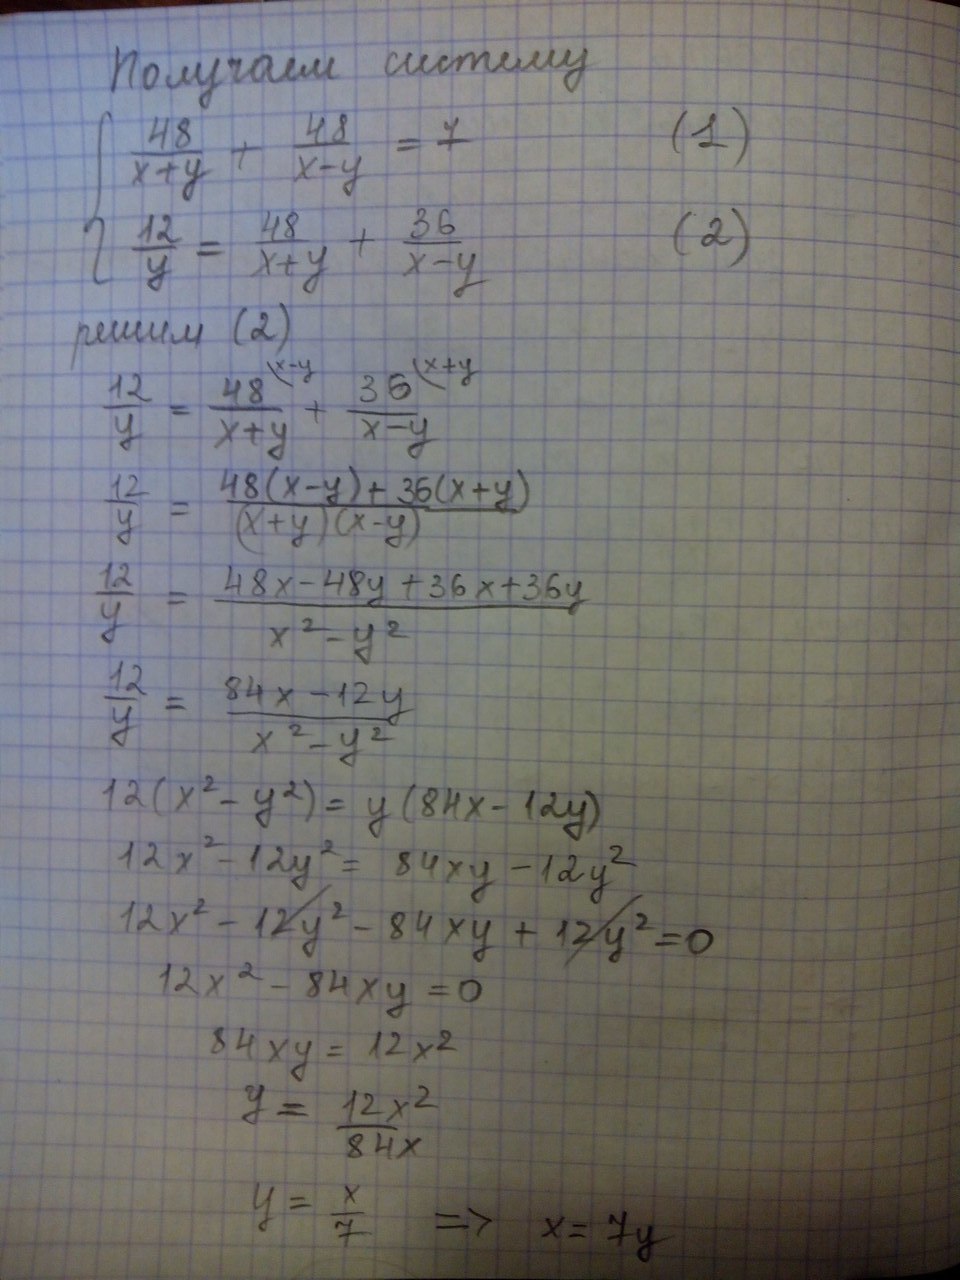 Получаем систему
{ 48/(x+y) + 48/(x-y) = 7 (1)
12/y = 48/(x+y) + 36/(x-y) (2)
решим (2)
12/y = 48(x-y/(x+y) + 36(x+y/(x-y)
12/y = (48(x-y)+36(x+y))/((x+y)(x-y))
12/y = (48x-48y+36x+36y)/(x²-y²)
12/y = (84x-12y)/(x²-y²)
12(x²-y²) = y(84x-12y)
12x²-12y² = 84xy-12y²
12x² - 12y² - 84xy + 12y² = 0
12x² - 84xy = 0
84xy = 12x²
y = 12x²/84x
y = x/7 => x = 7y